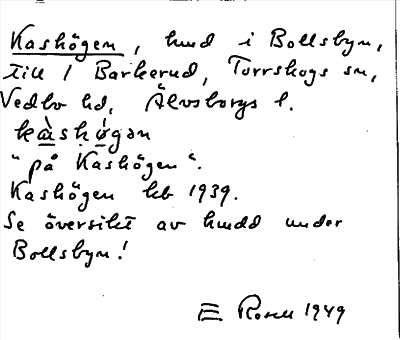 Kashögen, hmd i Bollsbyn,
till 1 Barkerud, Torrskogs sn,
Vedbo hd, Älvsborgs l.
kàshǿgən
"på Kashögen".
Kashögen kb 1939.
Se översikt av hmdd under
Bollsbyn!
E Rosell 1949